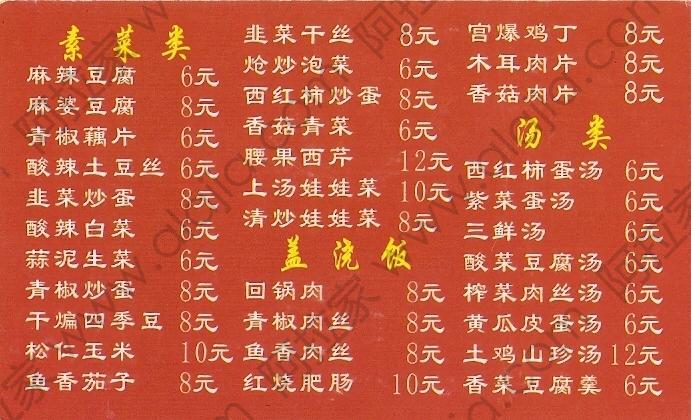 素菜类
麻辣豆腐 6元
麻婆豆腐 8元
青椒藕片 6元
酸辣土豆丝 6元
韭菜炒蛋 8元
酸辣白菜 6元
蒜泥生菜 6元
青椒炒蛋 8元
干煸四季豆 8元
松仁玉米 10元
鱼香茄子 8元
韭菜干丝 8元
炝炒泡菜 6元
西红柿炒蛋 8元
香菇青菜 6元
腰果西芹 12元
上汤娃娃菜 10元
清炒娃娃菜 8元
盖浇饭
回锅肉 8元
青椒肉丝 8元
鱼香肉丝 8元
红烧肥肠 10元
宫爆鸡丁 8元
木耳肉片 8元
香菇肉片 8元
汤类
西红柿蛋汤 6元
紫菜蛋汤 6元
三鲜汤 6元
酸菜豆腐汤 6元
榨菜肉丝汤 6元
黄瓜皮蛋汤 6元
土鸡山珍汤 12元
香菜豆腐羹 6元